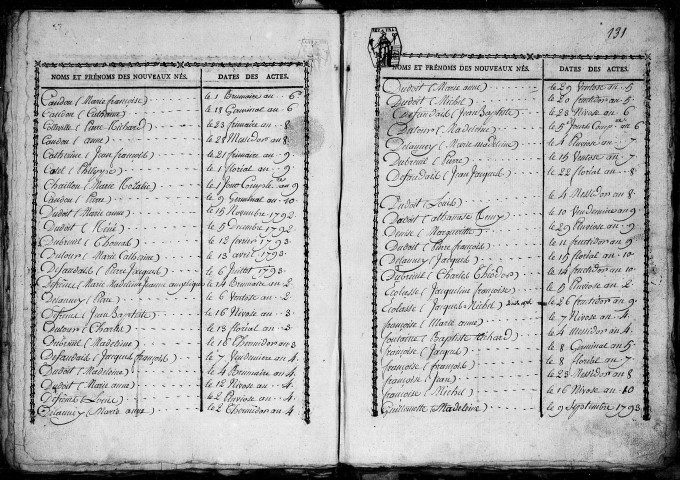 NOMS ET PRÉNOMS DES NOUVEAUX NÉS. DATES DES ACTES.
Caudou (Marie françoise) le 1 Brumaire an 6
Caudou (Catherine) le 18 Germinal an 6
(Pierre Richard) le 23 frimaire an 8
Caudou (anne) le 28 Messidor an 8
Catherine (Jean françois) le 21 frimaire an 9
Catel (Philippe) le 1 floréal an 9
Chaillou (Marie Rozalie) le 1 Jour Comple. an 9
Caudou (Pierre) le 9 Germinal an 10
Dudoit (Marie anne) le 15 Novembre 1792
Dudoit (René) le 5 Decembre 1792
Dubreuil (Thomas) le 12 fevrier 1793
Dutour (Marie Catherine) le 13 avril 1793
Defandais (Pierre Jacques) le 6 Juillet 1793
(Marie Madeleine Jeanne angelique) le 14 Brumaire an 2
Delauney (Pierre) le 6 Ventose an 2
(Jean Baptiste) le 16 Nivose an 3
Dutour (Charles) le 13 floréal an 3
Dubreuil (Madeleine) le 18 Thermidor an 3
Defandais (Jacques françois) le 7 Vendemiaire an 4
Dudoit (Madeleine) le 4 Brumaire an 4
Dudoit (Marie anne) le 12 Nivose an 4
(Louise) le 2 Pluviose an 4
Delauney (Marie anne) le 2 Thermidor an 4
131
NOMS ET PRÉNOMS DES NOUVEAUX NÉS. DATES DES ACTES.
Dudoit (Marie anne) le 29 Ventose an 5
Dudoit (Michel) le 20 fructidor an 5
(Jean Baptiste) le 23 Nivose an 6
Dutour (Madeleine) le 5 Jour Comp. an 6
Delauney (Marie madeleine) le 4 Pluviose an 7
Dubreuil (Pierre) le 15 Ventose an 7
Defandais (Jean Jacques) le 22 floréal an 8
Dudoit (Louis) le 4 Messidor an 8
Dudoit (athanase Remy) le 10 Vendemiaire an 9
Denise (Margueritte) le 29 Pluviose an 9
Dudoit (Pierre françois) le 11 fructidor an 9
Delauney (Jacques) le 15 floréal an 10
Dubreuil (Charles Theodore) le 14 fructidor an 10
Ecolasse (Jacqueline françoise) le 5 Pluviose an 2
Ecolasse (Jacques Michel) le 26 fructidor an 9
françoise (Marie anne) le 7 Nivose an 4
fontaine (Baptiste Richard) le 4 Messidor an 4
françoise (Jacques) le 8 Germinal an 5
françoise (françois) le 8 floréal an 7
françoise (Jean) le 23 Messidor an 8
françoise (Michel) le 16 Nivose an 10
Guillemette (Madeleine) le 9 Septembre 1793